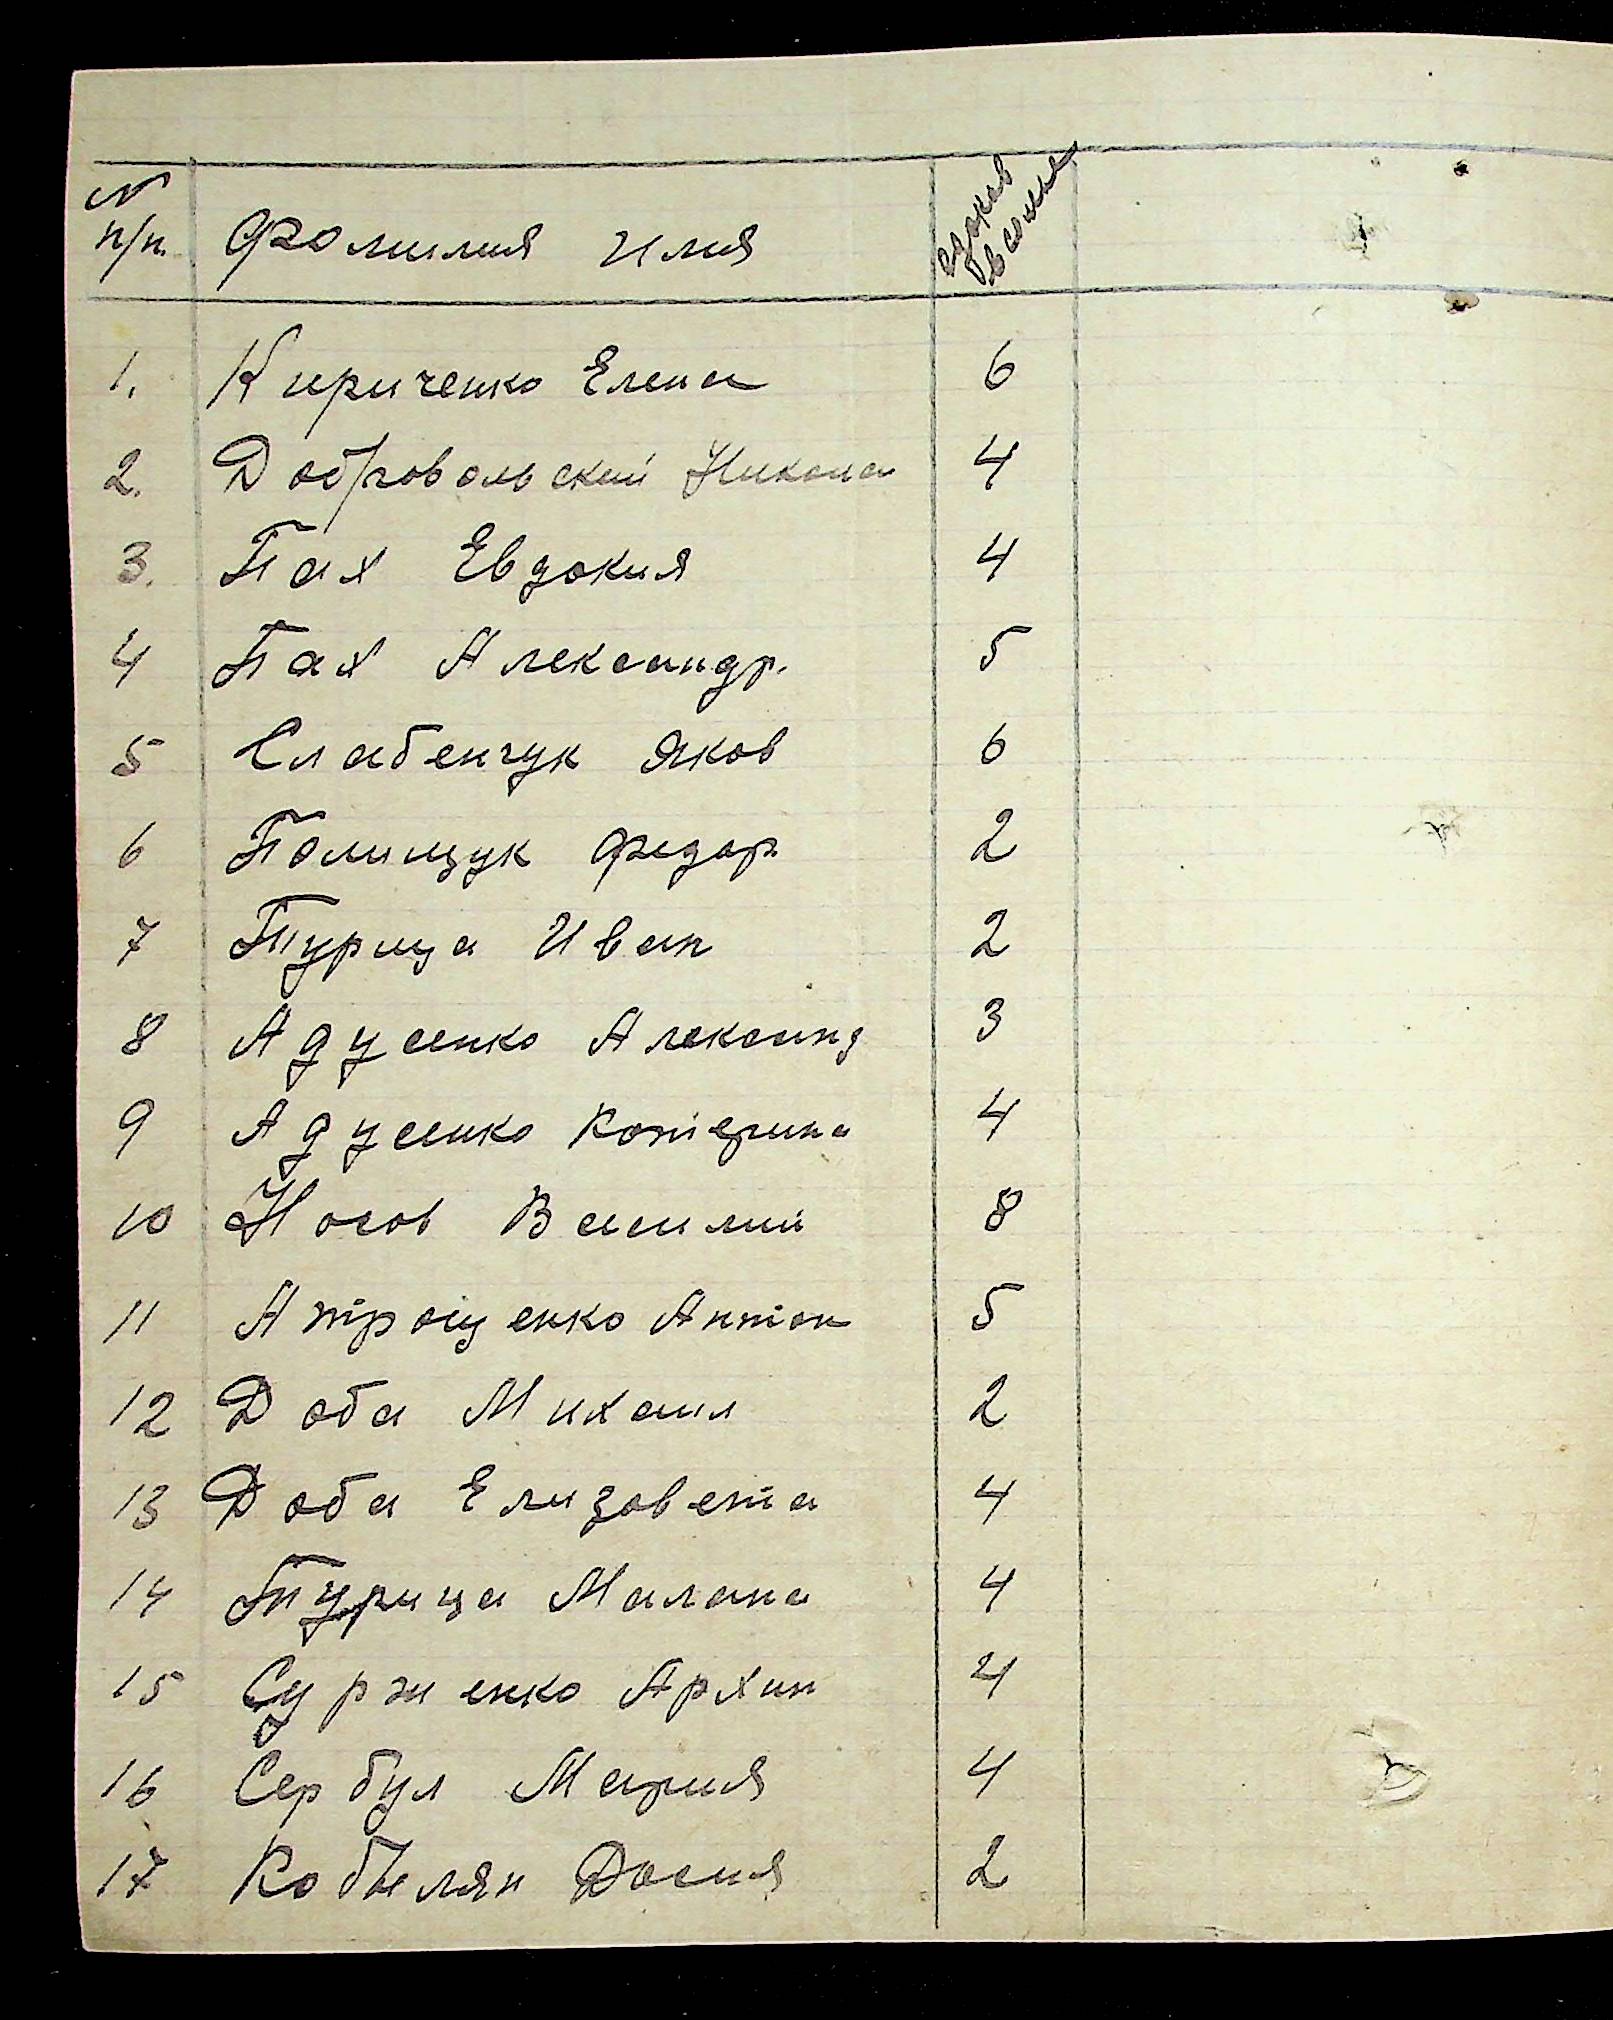 N п/п. Фамилия имя едоков в семье
1. Кириченко Елена 6
2. Добровольский Никона 4
3. Пах Евдокия 4
4 Пах Александр. 5
5 Слабенчук Яков 6
6 Полищук Федор 2
7 Турица Иван 2
8 Адусенко Александ 3
9 Адусенко Катерина 4
10 Носов Василий 8
11 Атрощенко Антон 5
12 Доба Михаил 2
13 Доба Елизовета 4
14 Турица Малана 4
15 Сурженко Архип 4
16 Сербул Мария 4
17 Кобылян Досия 2